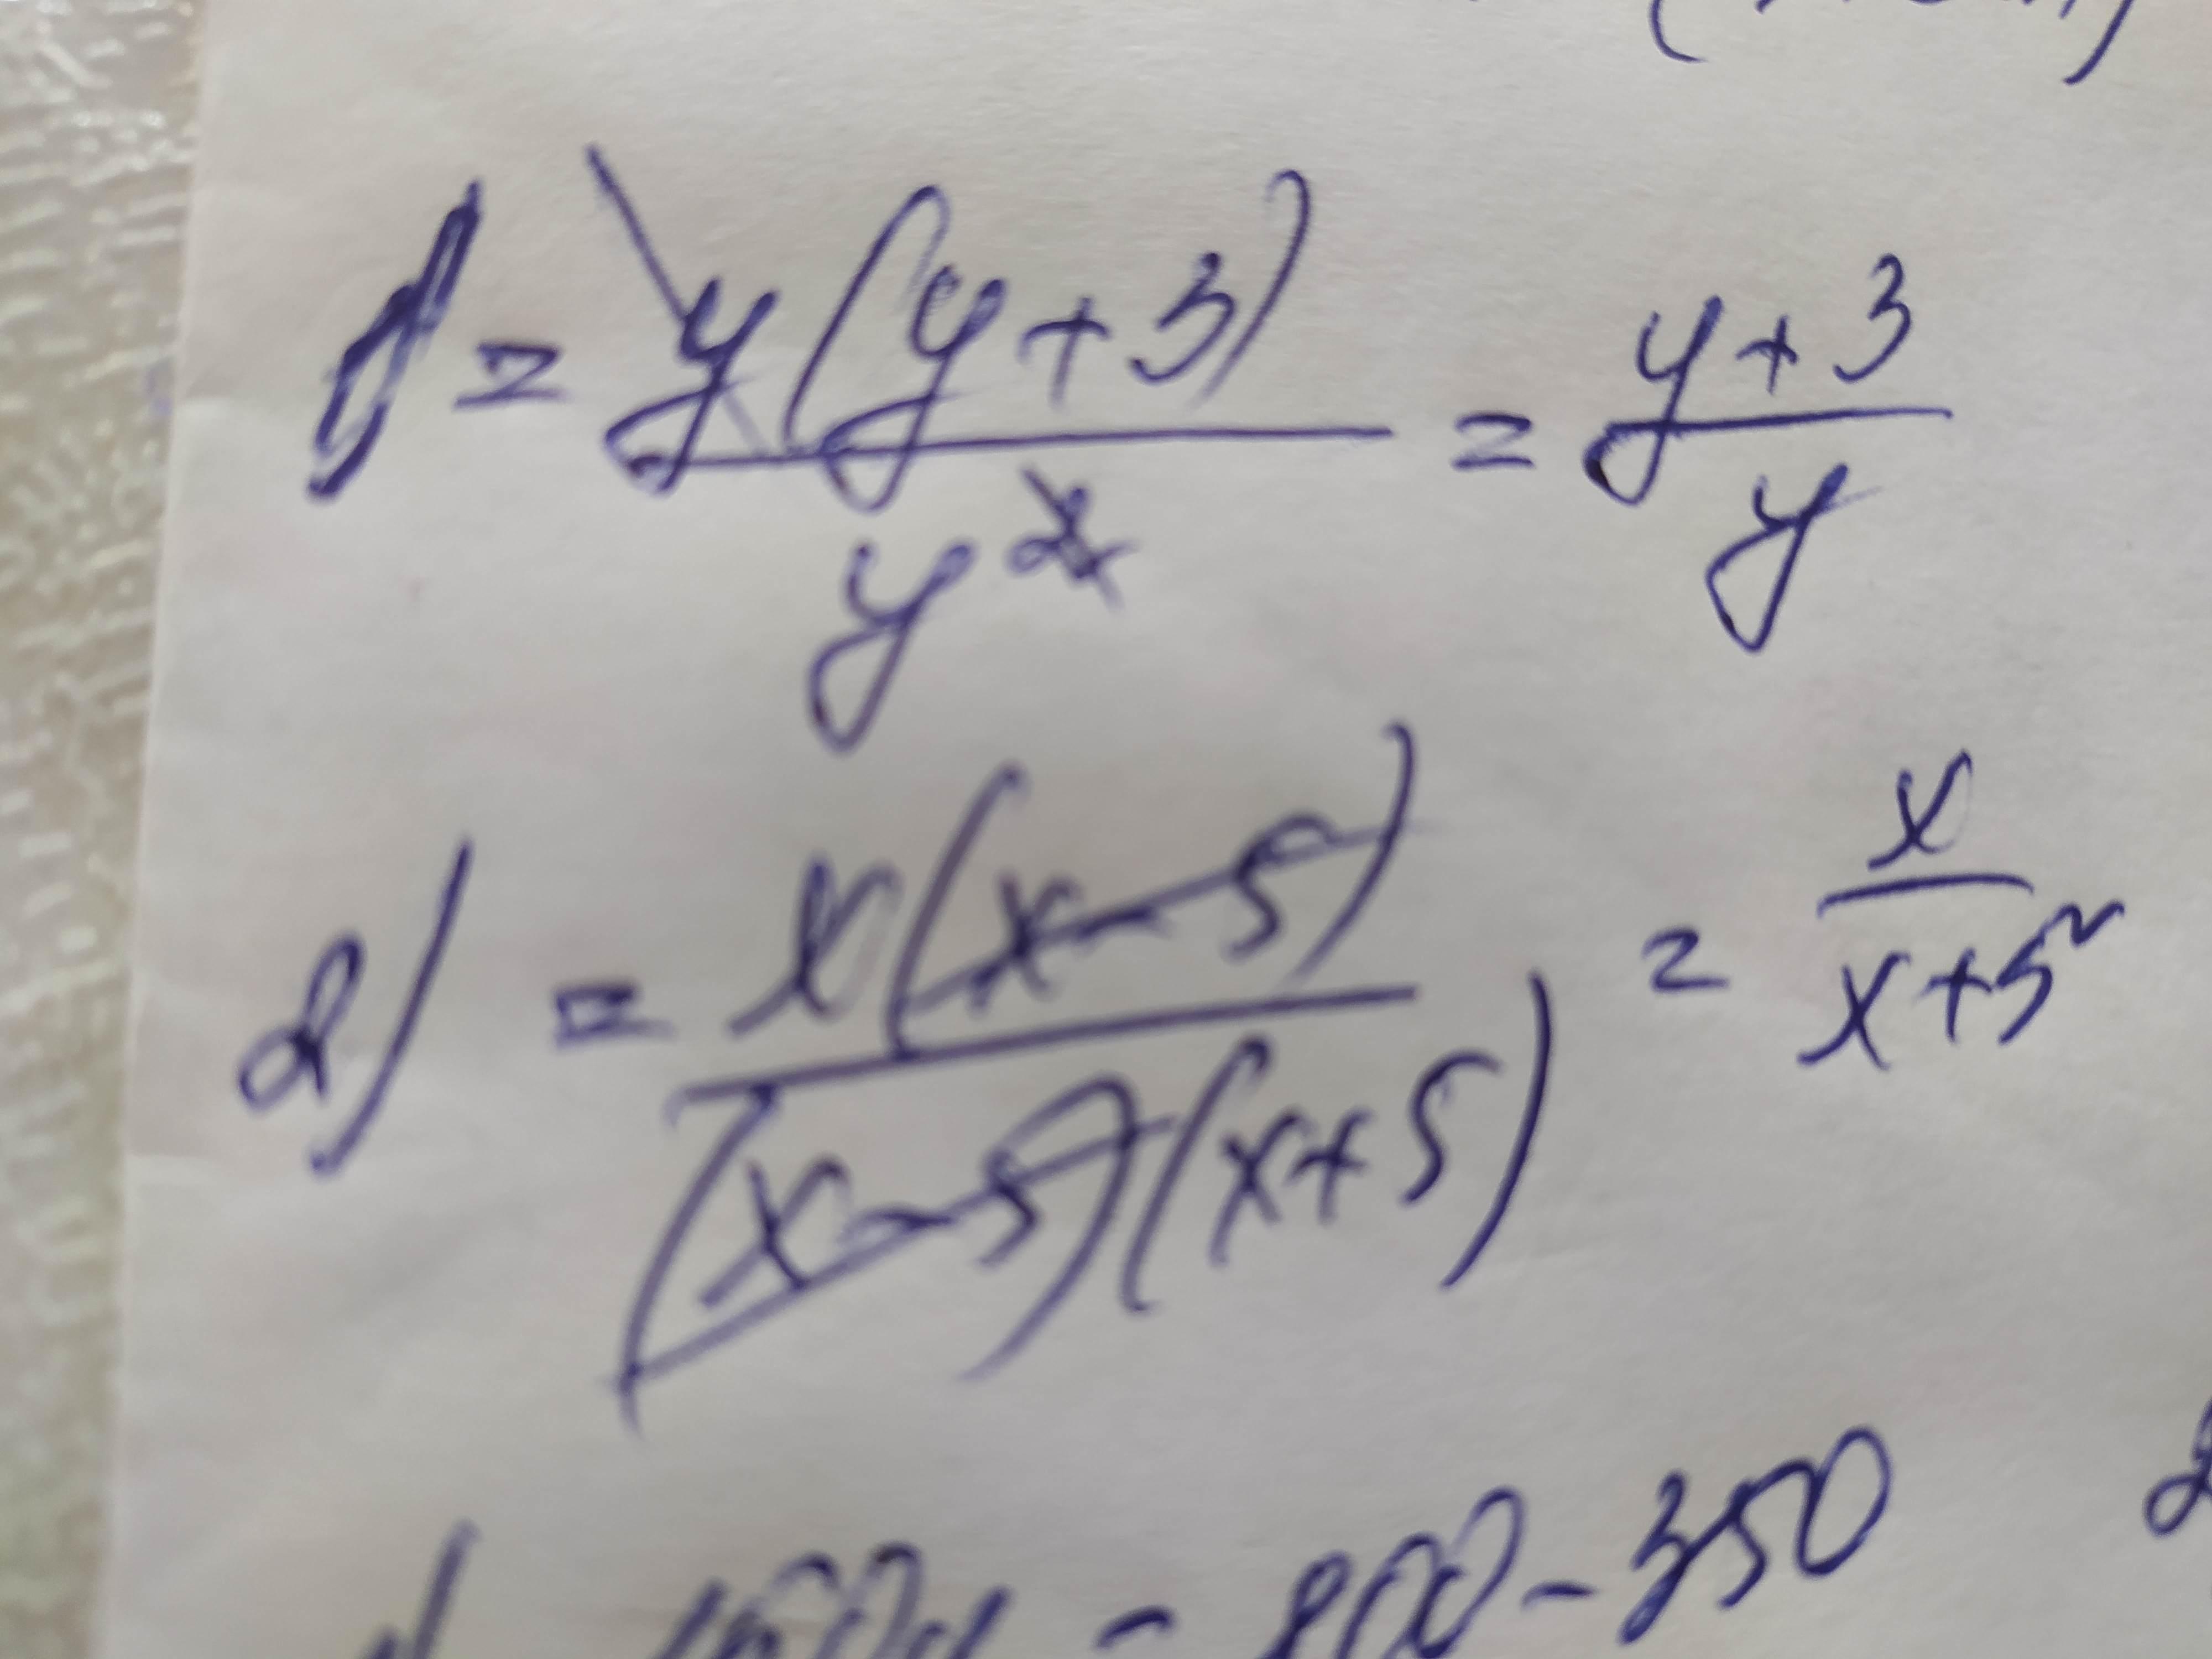 1) = y(y+3)/y² = y+3/y
2) = x(x-5)/(x-5)(x+5) = x/x+5
800-350